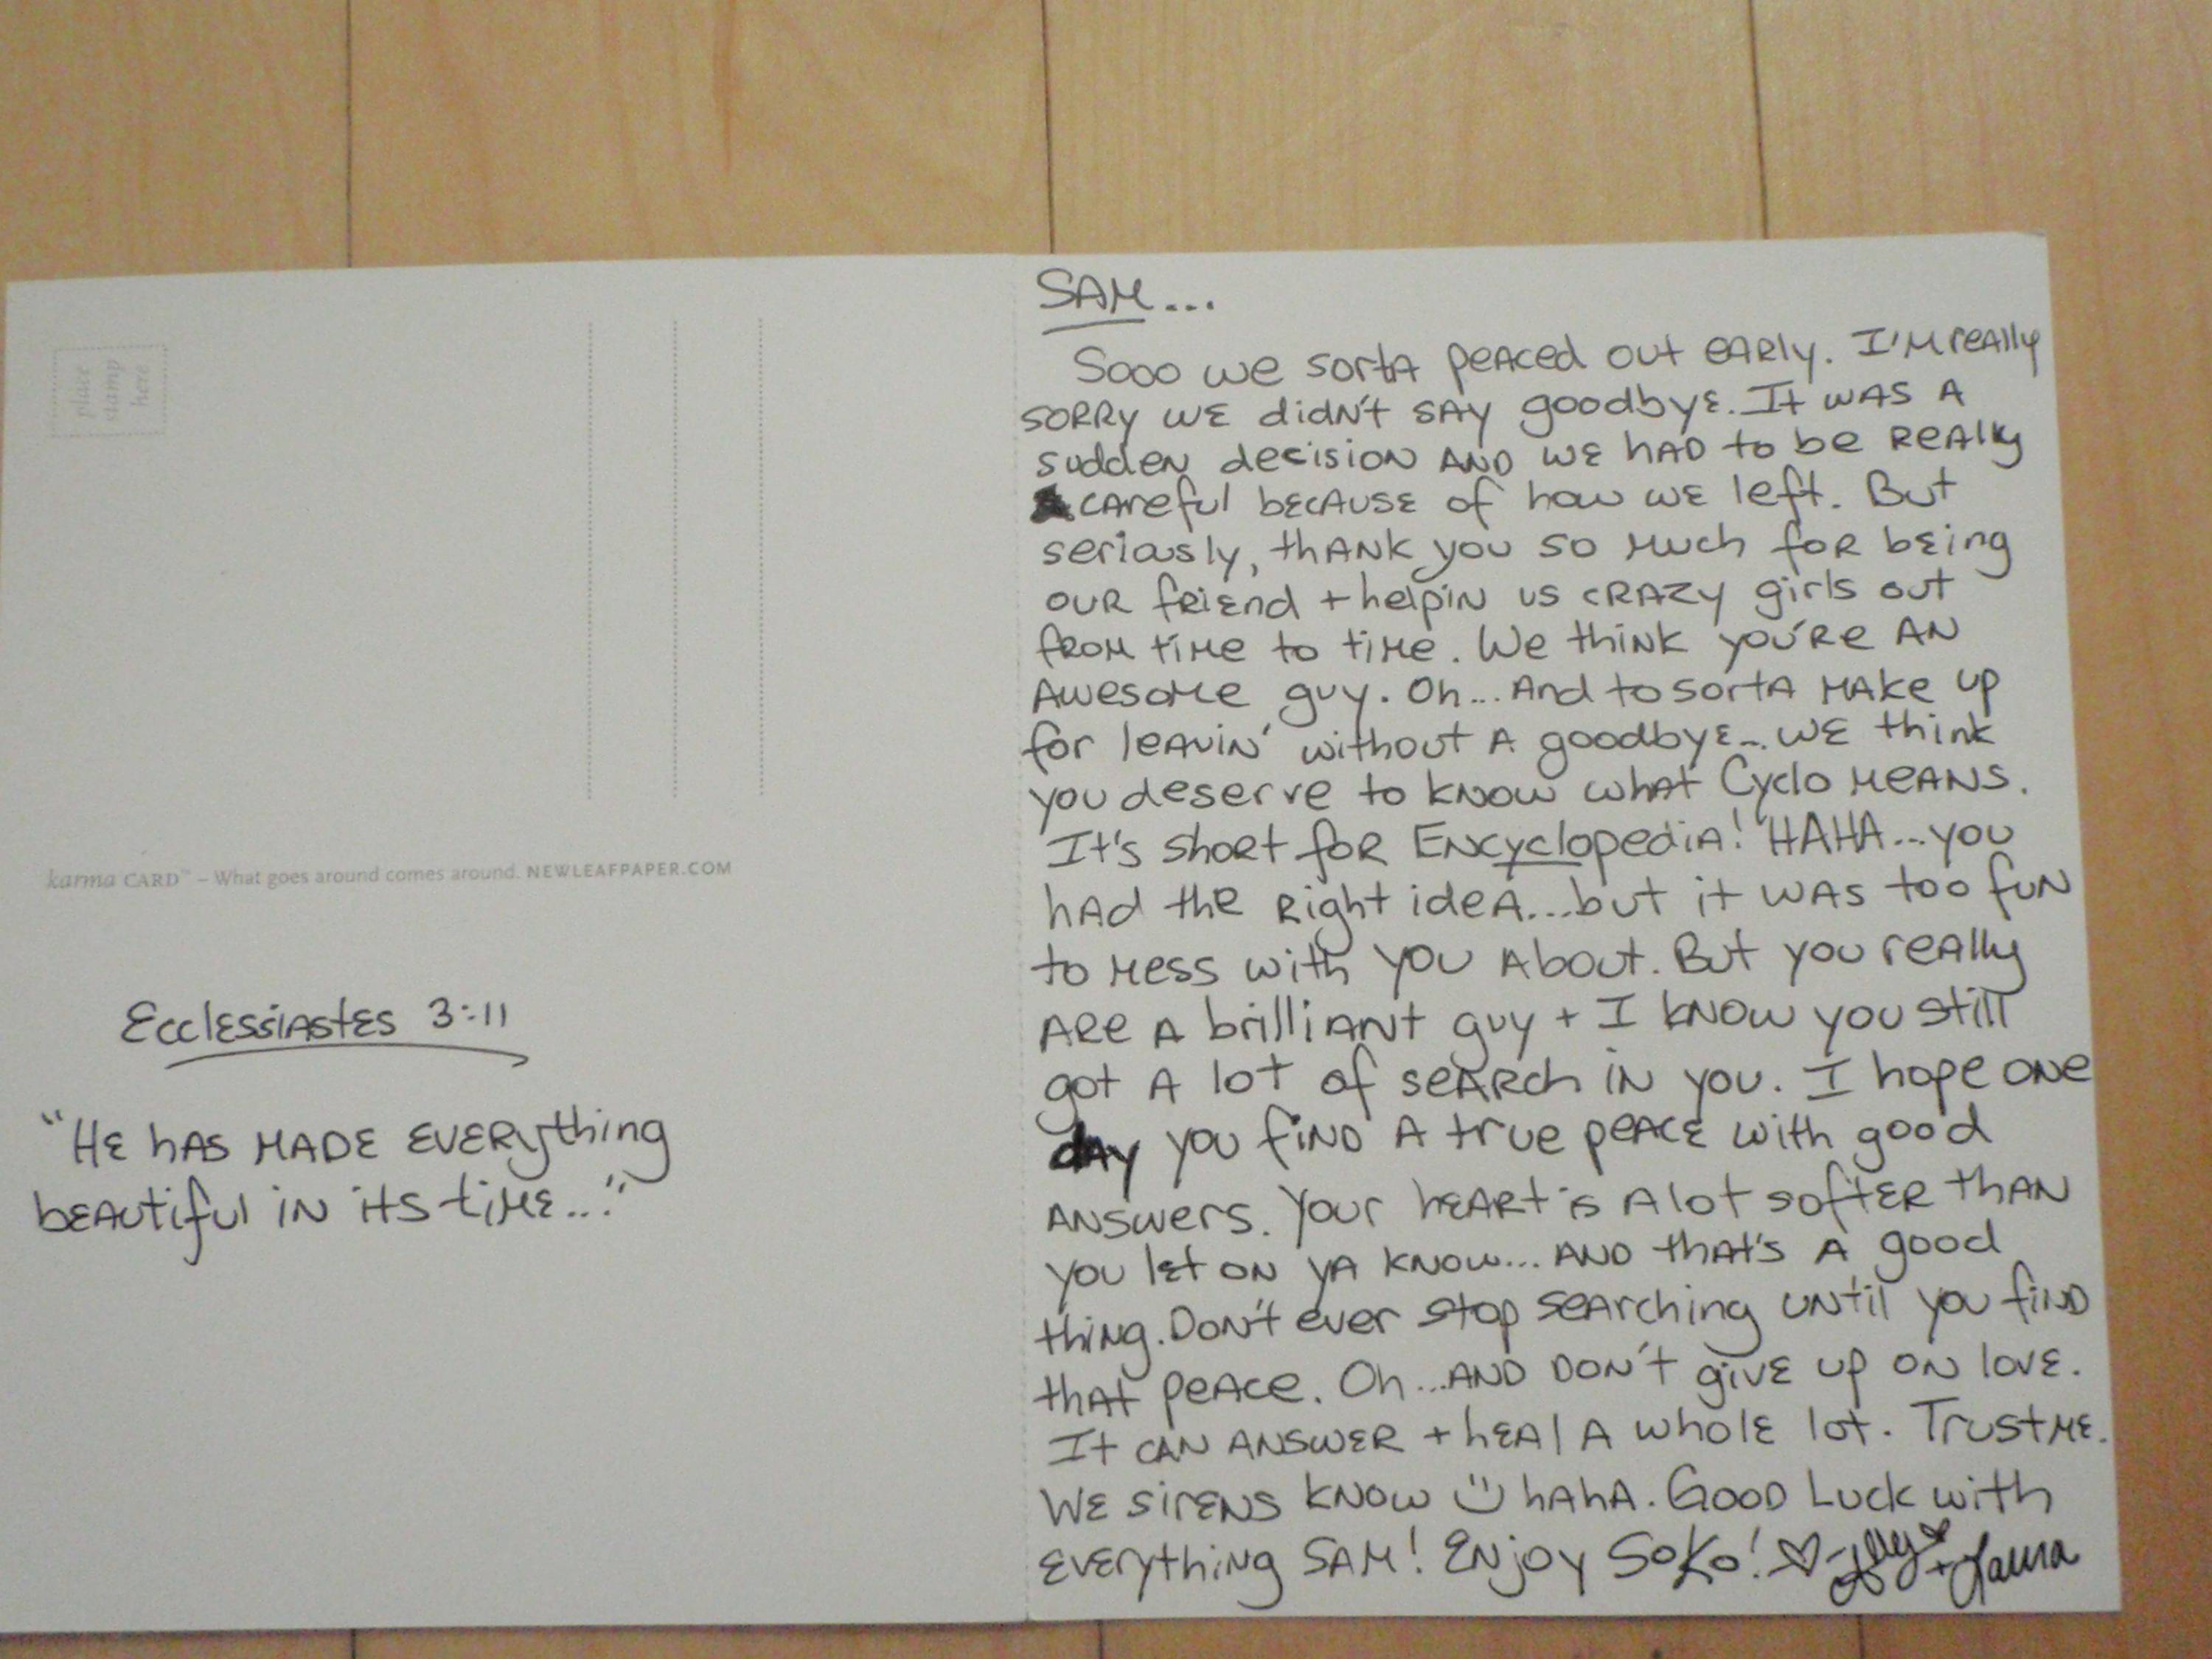 place
stamp
here
karma CARD™ – What goes around comes around. NEWLEAFPAPER.COM
Ecclessiastes 3:11
"He has made everything
beautiful in its time..."
SAM...
Sooo we sorta peaced out early. I'm really
sorry we didn't say goodbye. It was a
sudden decision and we had to be really
careful because of how we left. But
seriously, thank you so much for being
our friend + helpin us crazy girls out
from time to time. We think you're an
awesome guy. Oh... And to sorta make up
for leavin' without a goodbye... we think
you deserve to know what Cyclo means.
It's short for Encyclopedia! HAHA... you
had the right idea... but it was too fun
to mess with you about. But you really
are a brilliant guy + I know you still
got a lot of search in you. I hope one
day you find a true peace with good
answers. Your heart is a lot softer than
you let on ya know... and that's a good
thing. Don't ever stop searching until you find
that peace. Oh... and don't give up on love.
It can answer + heal a whole lot. Trust me.
We sirens know haha. Good Luck with
everything SAM! Enjoy SoKo! + Laura